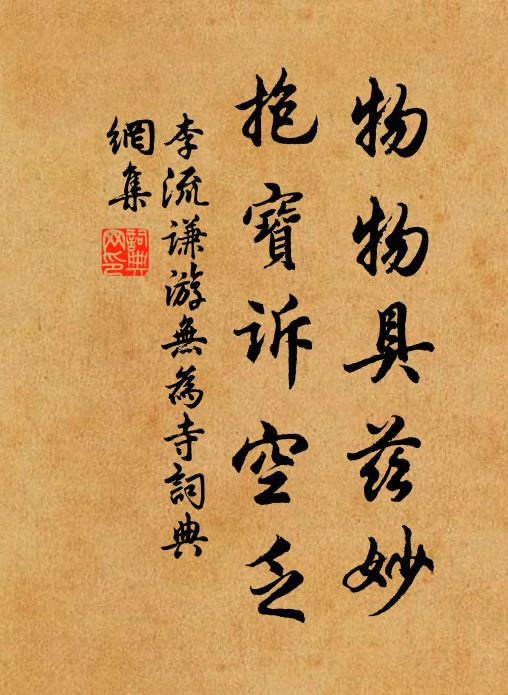 物物具茲妙
抱寶訴空乏
李流谦游無為寺詞典
網集
詞典
网印